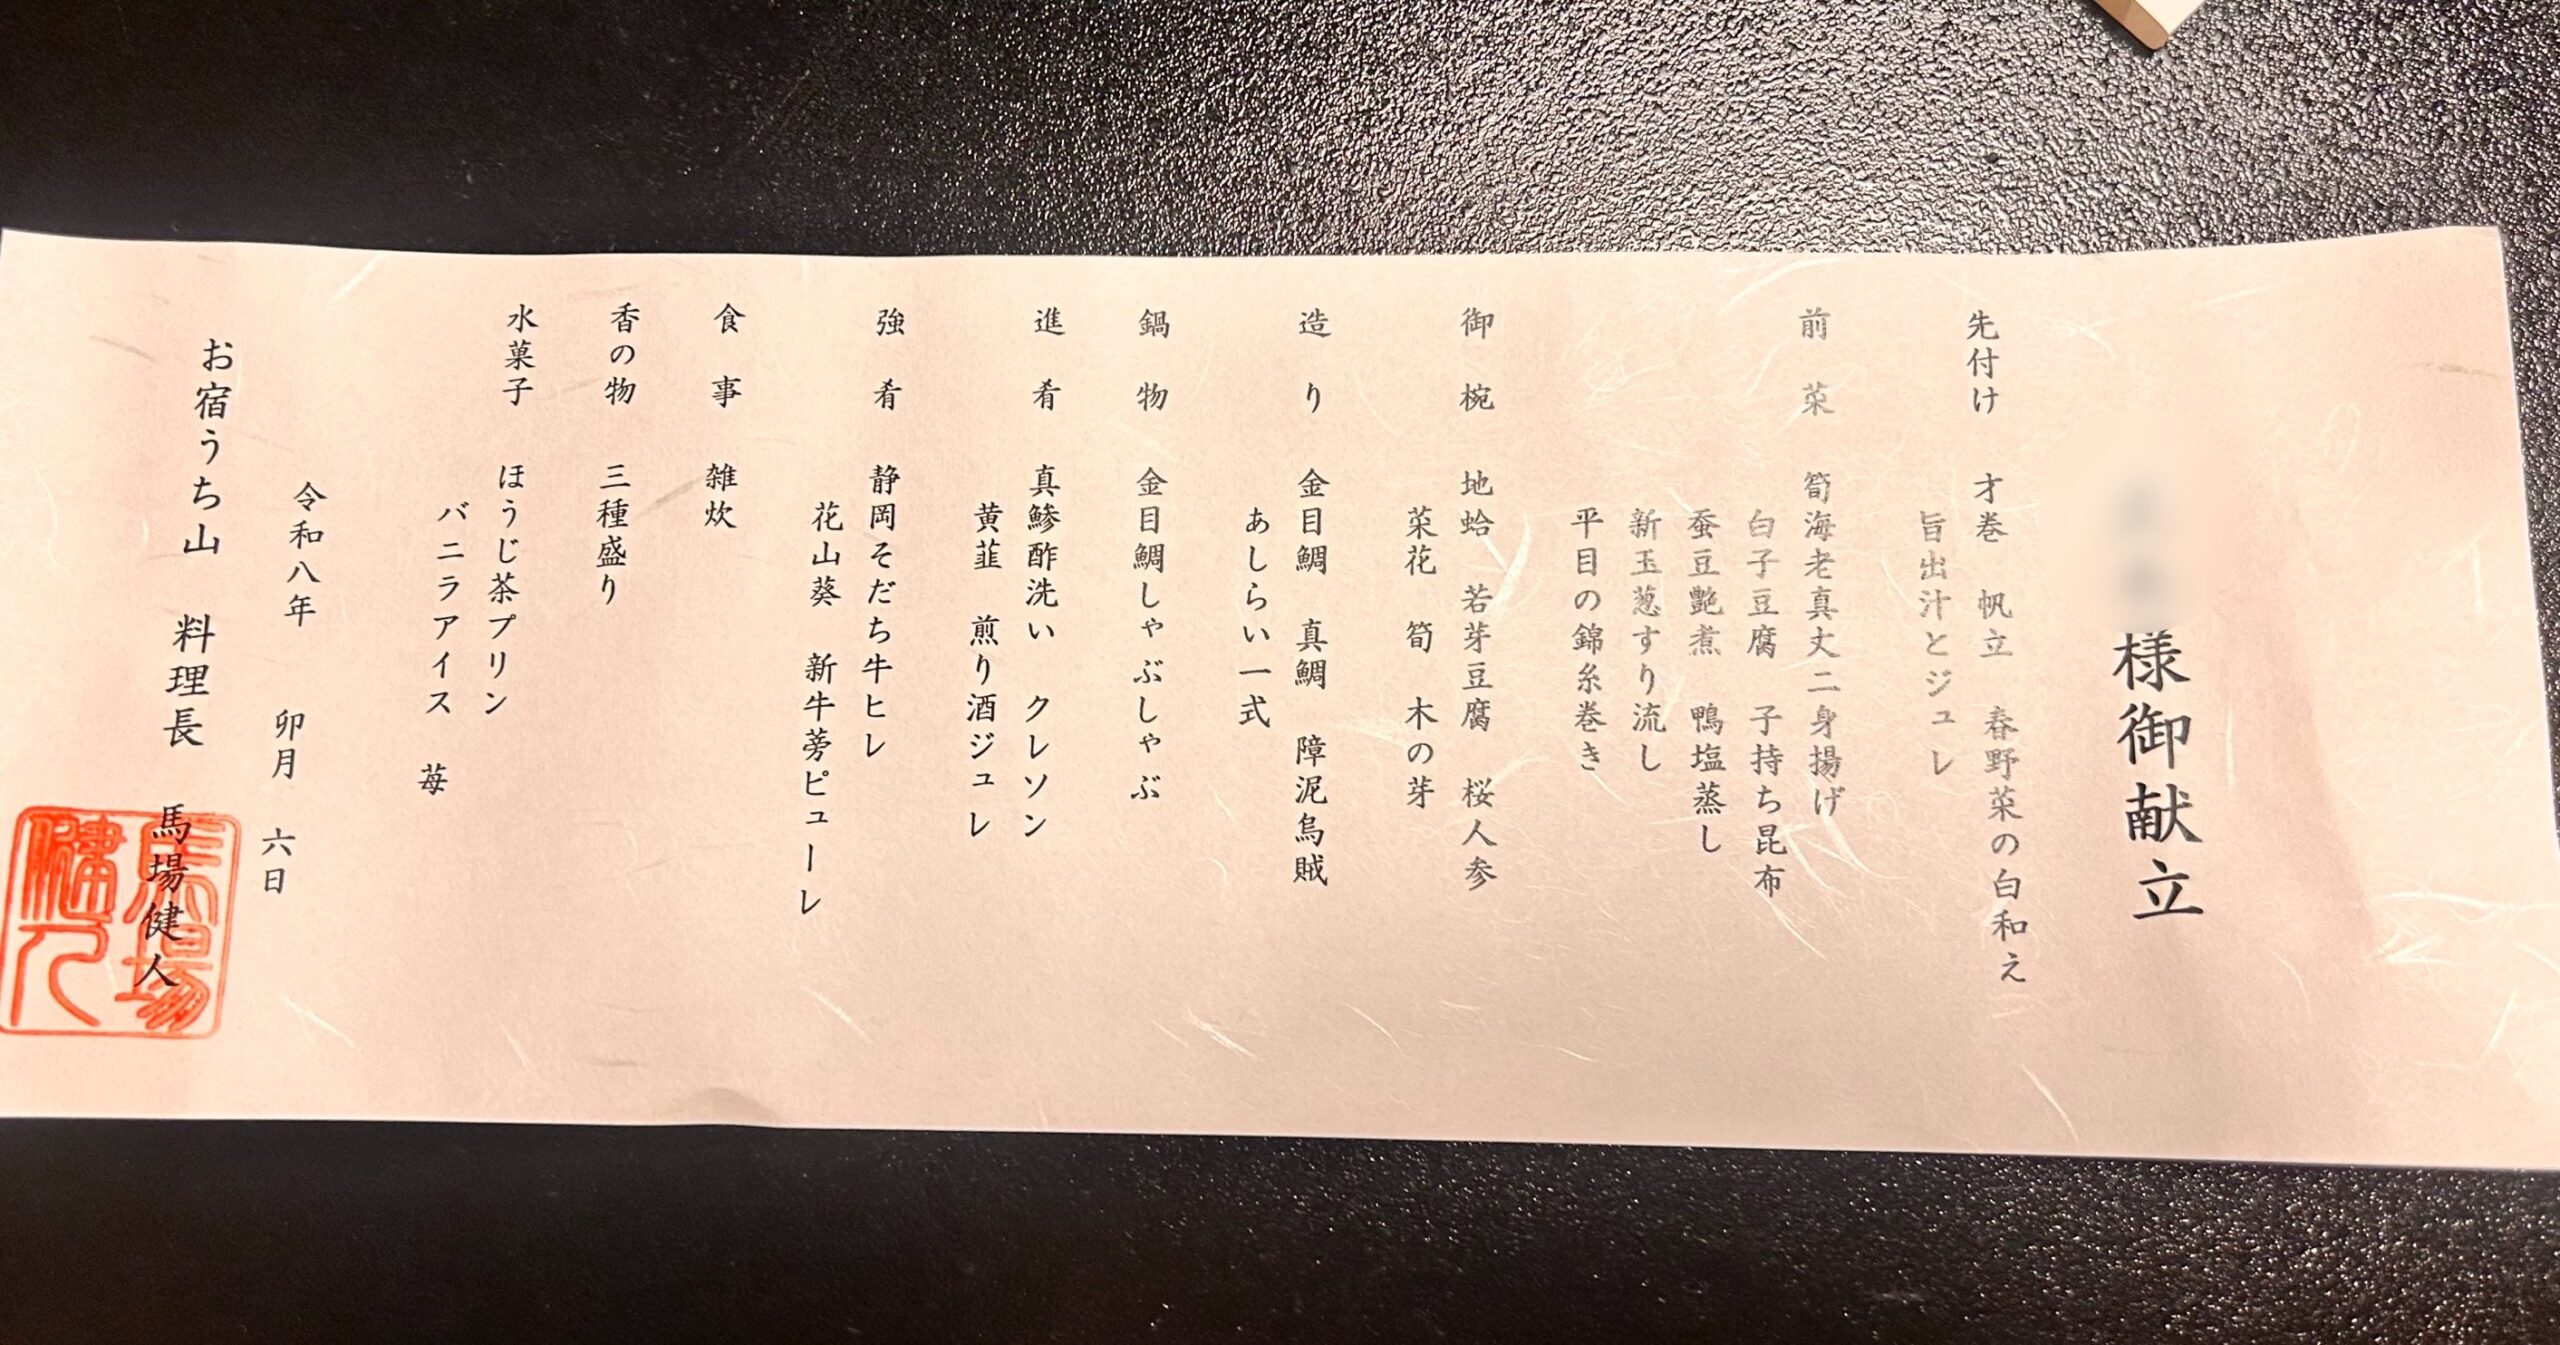 様御献立
先付け　才巻　帆立　春野菜の白和え
旨出汁とジュレ
前　菜　筍海老真丈二身揚げ
白子豆腐　子持ち昆布
蚕豆艶煮　鴨塩蒸し
新玉葱すり流し
平目の錦糸巻き
御　椀　地蛤　若芽豆腐　桜人参
菜花　筍　木の芽
造　り　金目鯛　真鯛　障泥烏賊
あしらい一式
鍋　物　金目鯛しゃぶしゃぶ
進　肴　真鯵酢洗い　クレソン
黄韮　煎り酒ジュレ
強　肴　静岡そだち牛ヒレ
花山葵　新牛蒡ピューレ
食　事　雑炊
香の物　三種盛り
水菓子　ほうじ茶プリン
バニラアイス　苺
令和八年　卯月　六日
お宿うち山　料理長　馬場健人
馬場
健人